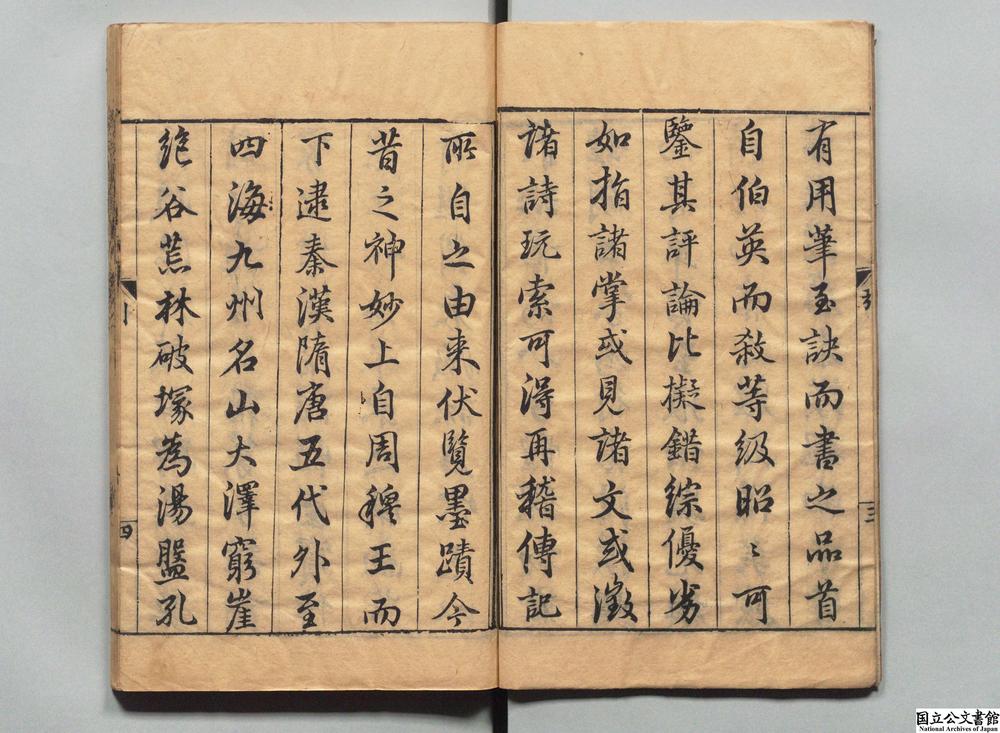 有用筆玉訣而書之品首
自伯英而殺等級昭〻可
鑒其評論比擬錯綜優劣
如指諸掌或見諸文或徵
諸詩玩索可得再稽傳記
所自之由来伏覽墨蹟今
昔之神妙上自周穆王而
下逮秦漢隋唐五代外至
四海九州名山大澤窮崖
絶谷荒林破塚為湯盤孔
三
四
国立公文書館
National Archives of Japan